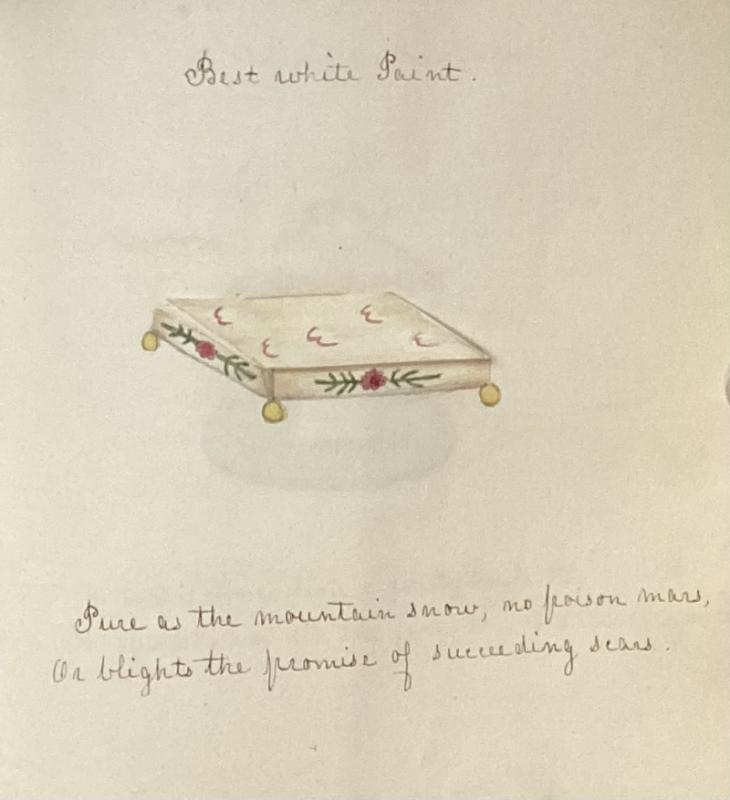 Best white Paint.
Pure as the mountain snow, no poison mars,
Or blights the promise of succeeding scars.